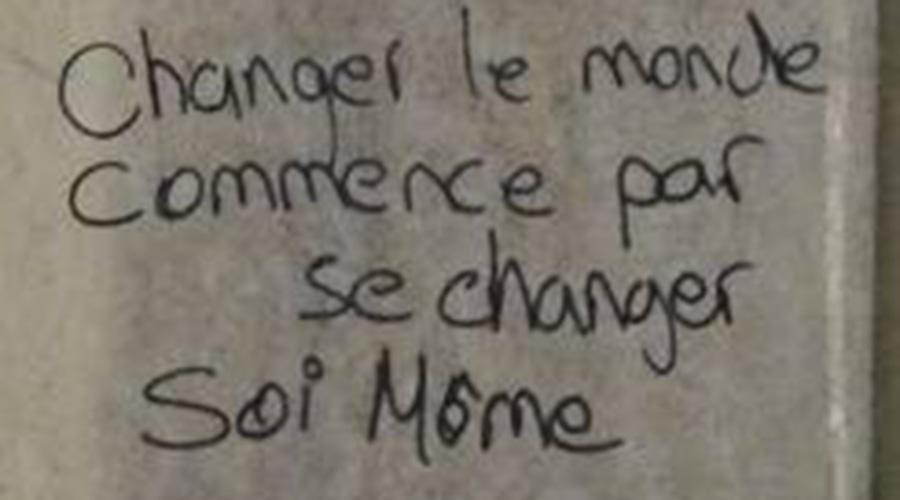 Changer le monde
Commence par
se changer
Soi Môme